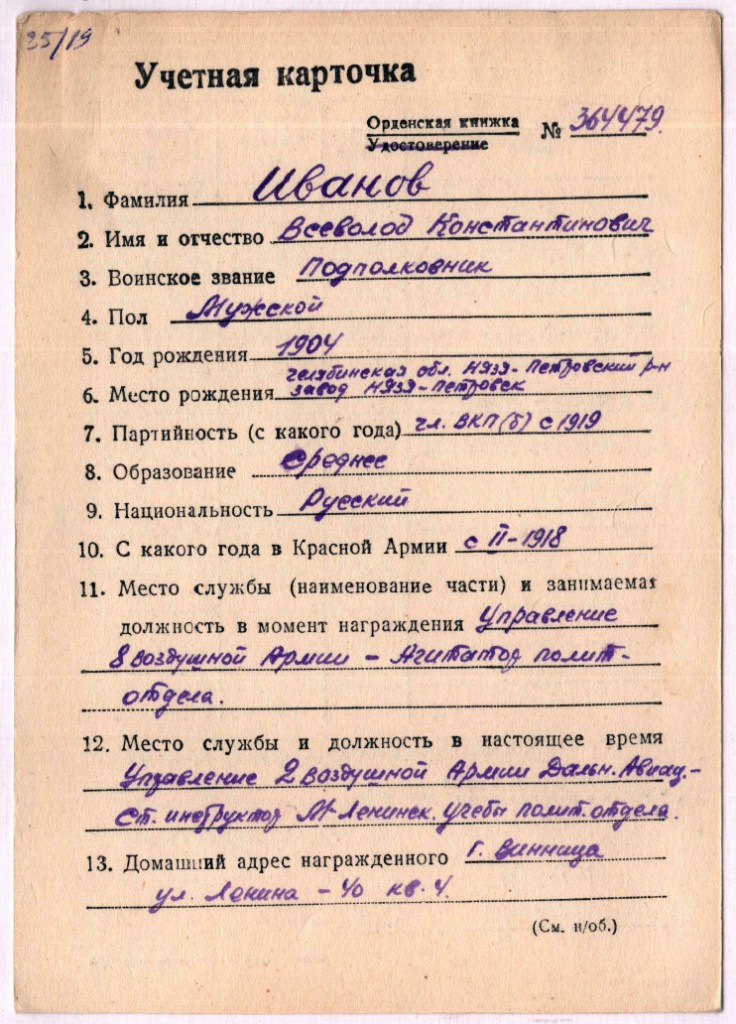 25/19
Учетная карточка
Орденская книжка
Удостоверение № 364479.
1. Фамилия Иванов
2. Имя и отчество Всеволод Константинович
3. Воинское звание Подполковник
4. Пол Мужской
5. Год рождения 1904
Челябинская обл. Нязе-Петровский р-н
6. Место рождения завод Нязе-Петровск
7. Партийность (с какого года) чл. ВКП(б) с 1919
8. Образование Среднее
9. Национальность Русский
10. С какого года в Красной Армии с II-1918
11. Место службы (наименование части) и занимаемая
должность в момент награждения Управление
8 воздушной Армии – Агитатор полит-
отдела.
12. Место службы и должность в настоящее время
Управление 2 воздушной Армии Дальн. Авиац.-
Ст. инструктор М-Ленинск. учебы полит. отдела.
13. Домашний адрес награжденного г. Винница
ул. Ленина – 40 кв. 4.
(См. н/об.)